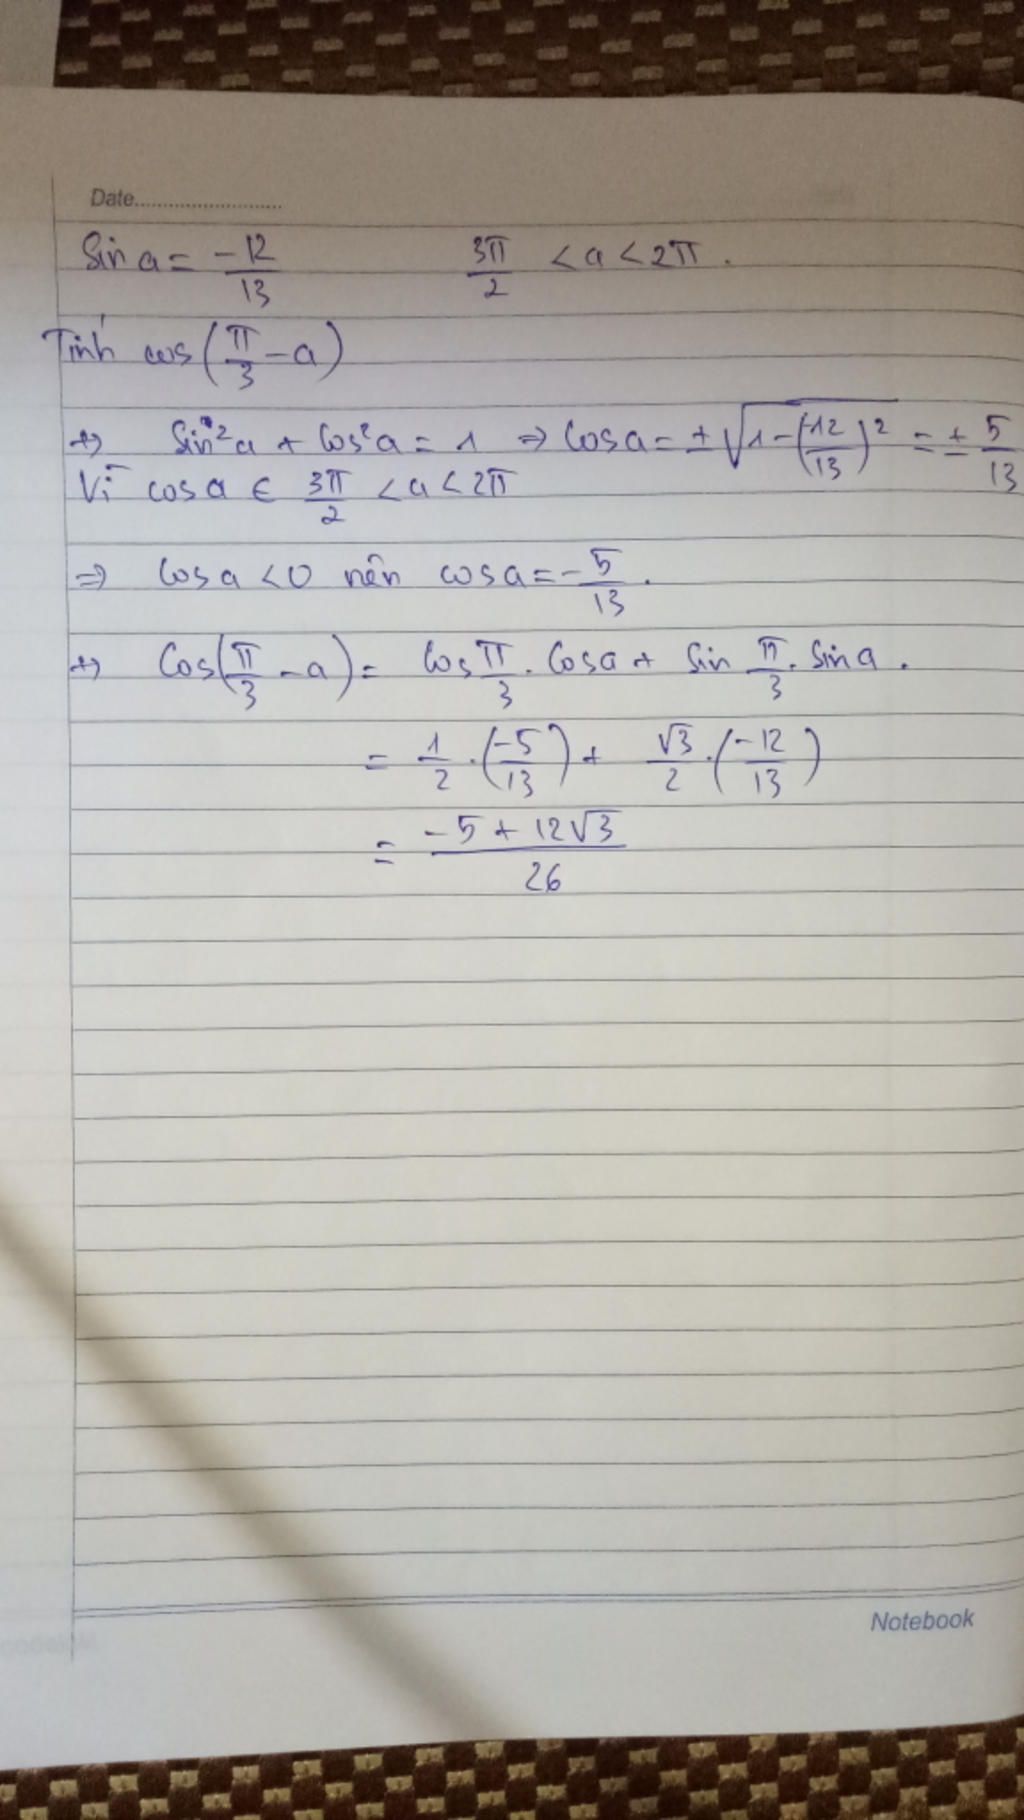 Date..........................
Sin a = -12/13    3π/2 < a < 2π.
Tính cos(π/3 - a)
+) Sin²a + Cos²a = 1 ⇒ Cos a = ±√(1-(-12/13)²) = ± 5/13
Vì cos a ∈ 3π/2 < a < 2π
⇒ Cos a < 0 nên cos a = -5/13.
+) Cos(π/3 - a) = Cos π/3 . Cos a + Sin π/3 . Sin a.
= 1/2 . (-5/13) + √3/2 . (-12/13)
= (-5 + 12√3)/26
Notebook